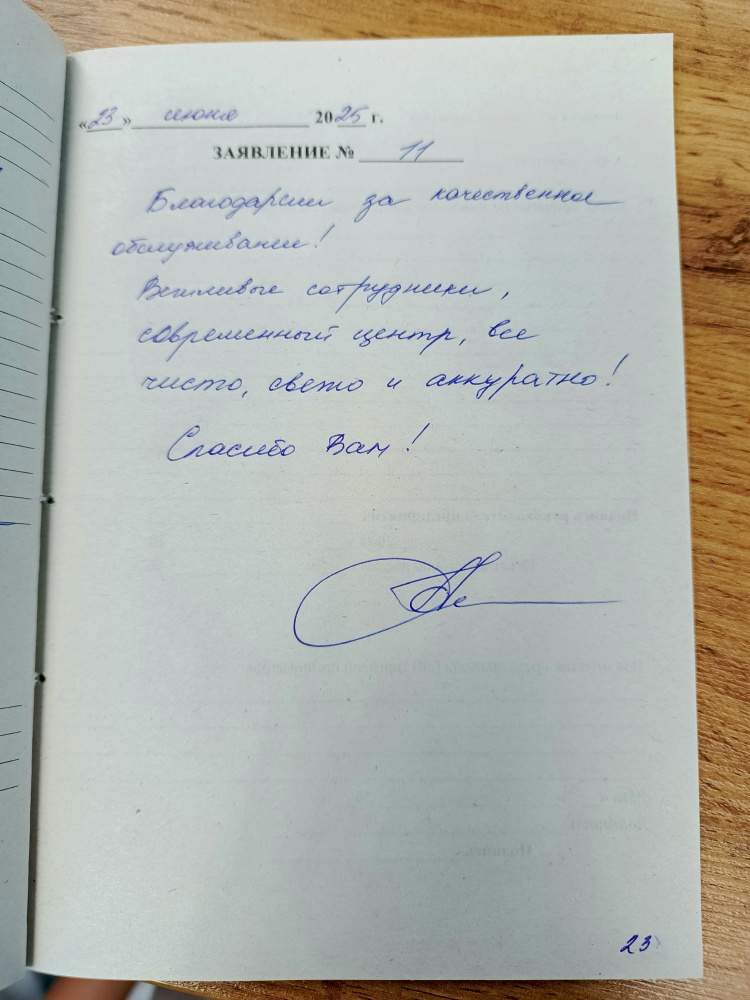 «23» июня 2025 г.
ЗАЯВЛЕНИЕ № 11
Благодарим за качественное
обслуживание!
Вежливые сотрудники,
современный центр, все
чисто, свежо и аккуратно!
Спасибо Вам!
23